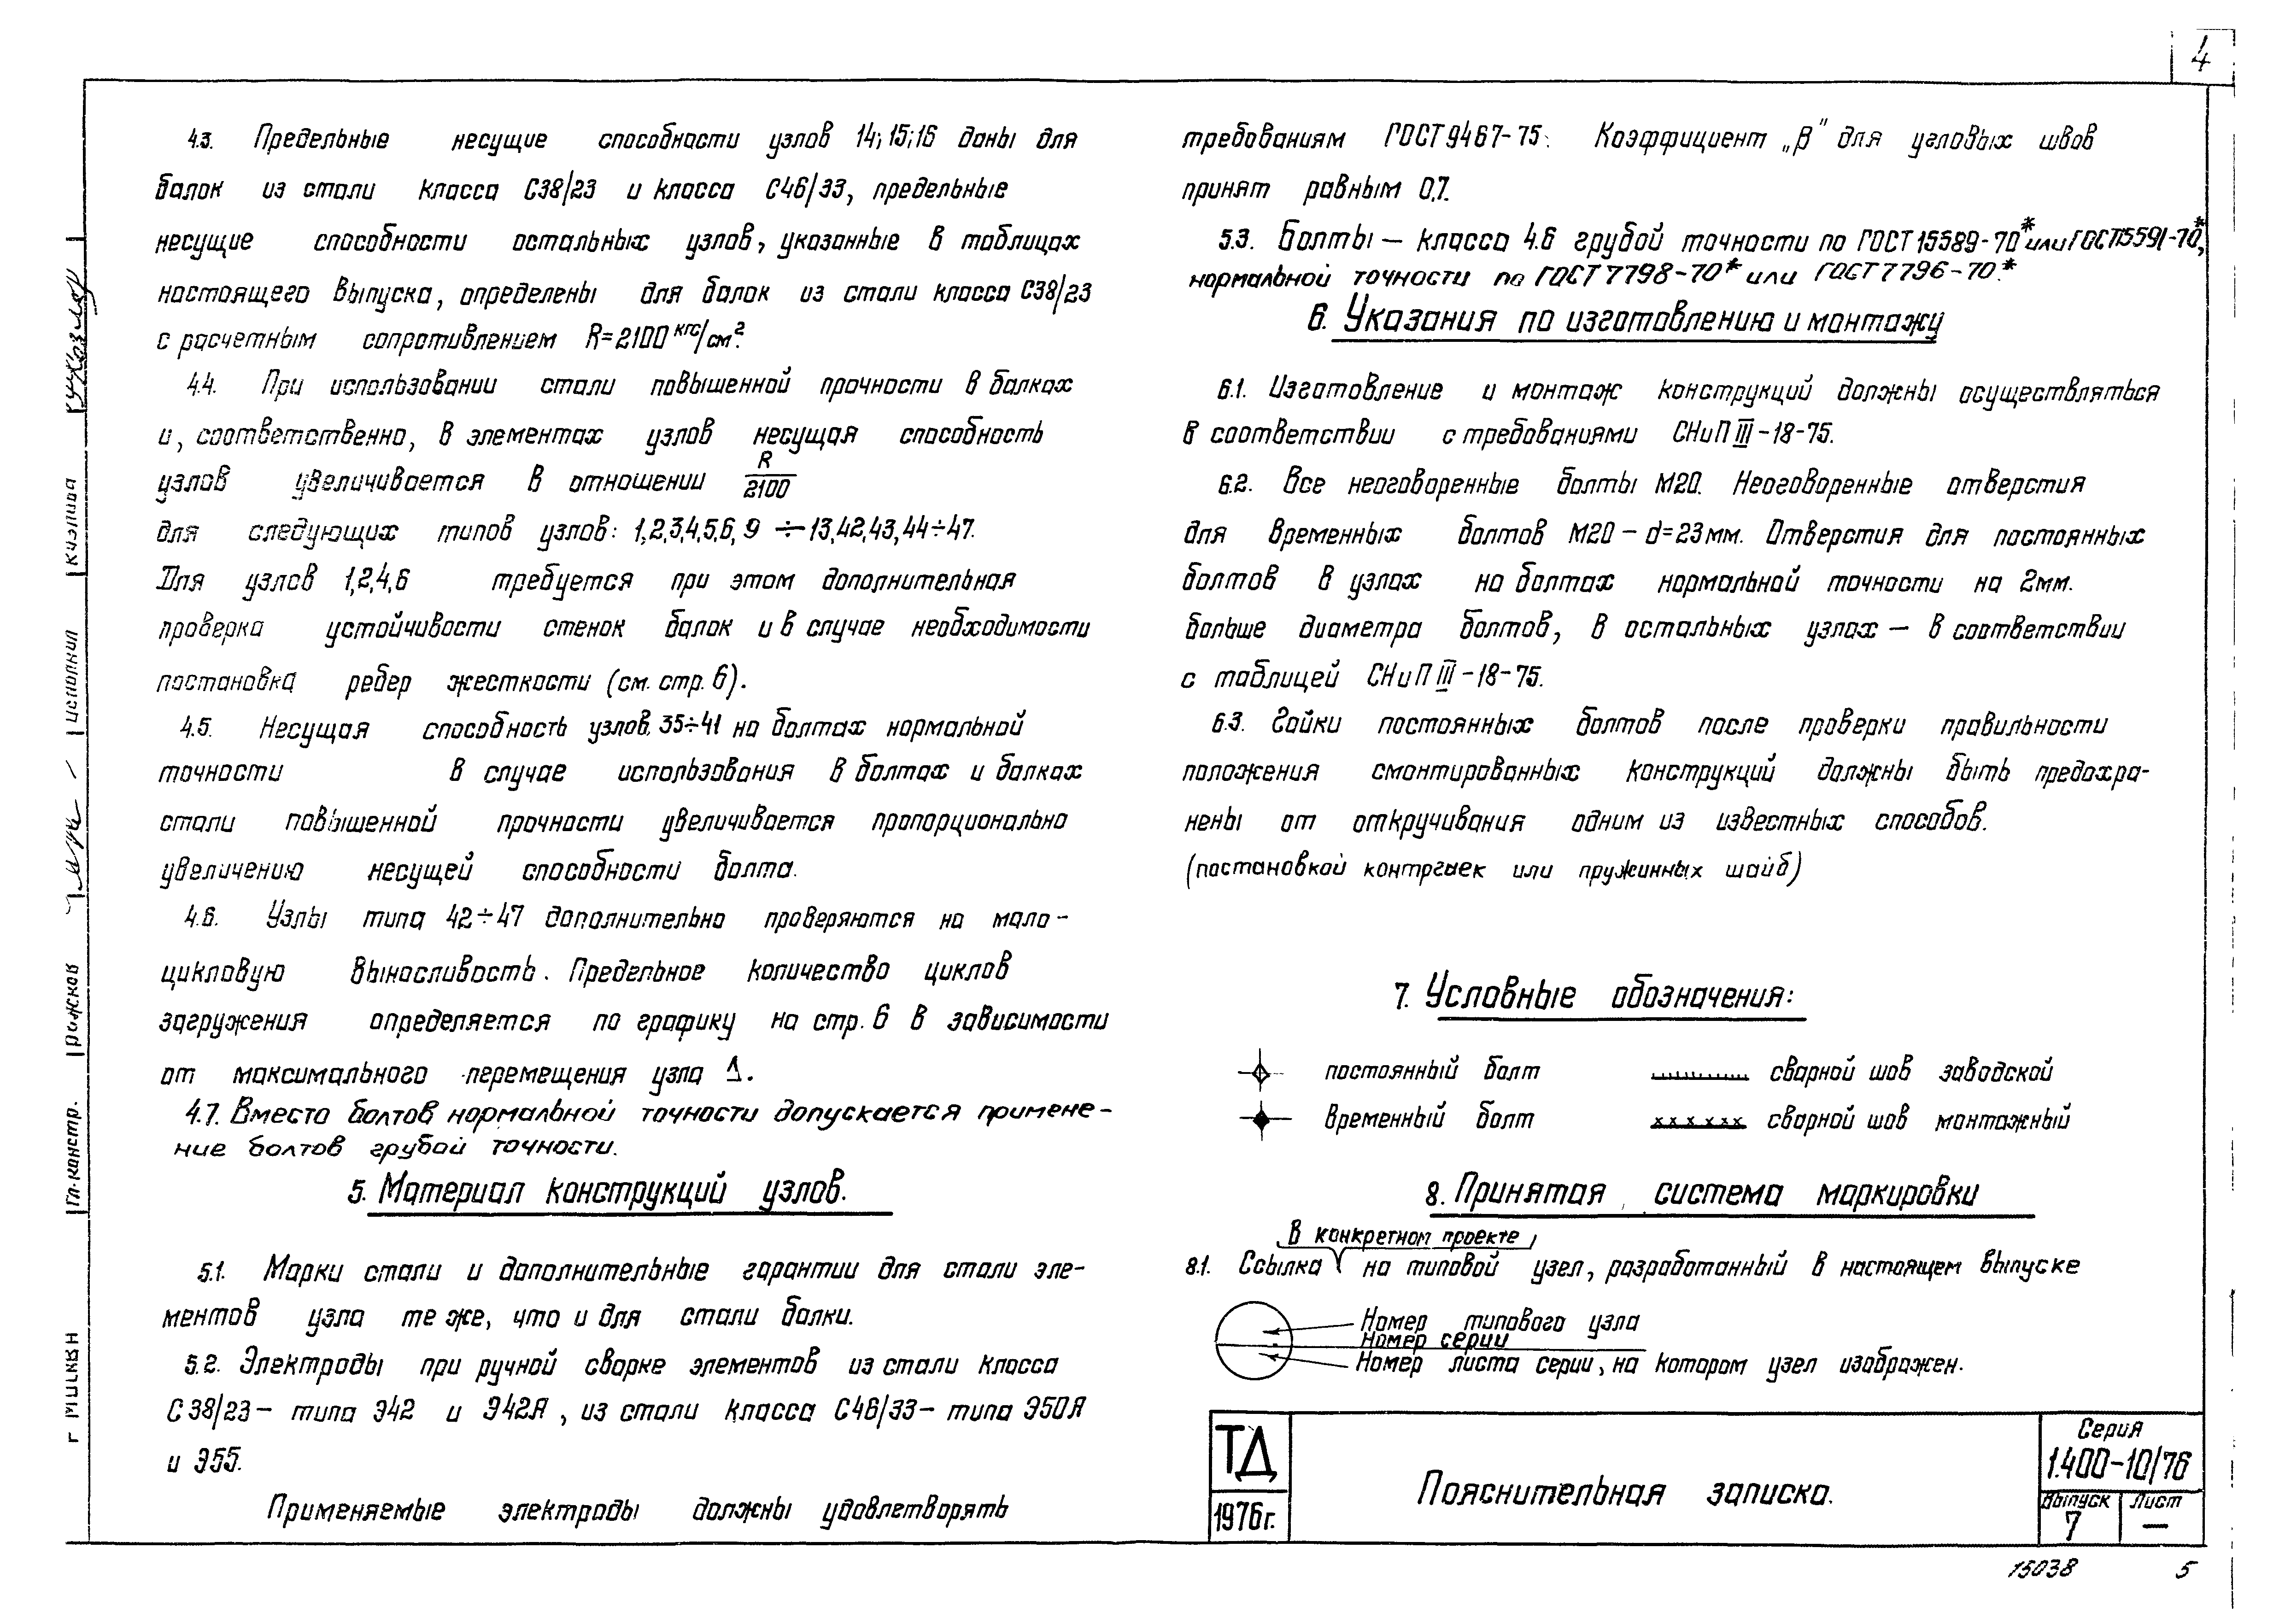 4
4.3. Предельные несущие способности узлов 14; 15; 16 даны для
балок из стали класса С38/23 и класса С46/33, предельные
несущие способности остальных узлов, указанные в таблицах
настоящего выпуска, определены для балок из стали класса С38/23
с расчетным сопротивлением R=2100 кгс/см².
4.4. При использовании стали повышенной прочности в балках
и, соответственно, в элементах узлов несущая способность
узлов увеличивается в отношении R/2100
для следующих типов узлов: 1,2,3,4,5,6, 9 ÷ 13, 42, 43, 44÷47.
Для узлов 1,2,4,6 требуется при этом дополнительная
проверка устойчивости стенок балок и в случае необходимости
постановка ребер жесткости (см. стр. 6).
4.5. Несущая способность узлов, 35÷41 на болтах нормальной
точности в случае использования в болтах и балках
стали повышенной прочности увеличивается пропорционально
увеличению несущей способности болта.
4.6. Узлы типа 42÷47 дополнительно проверяются на мало-
цикловую выносливость. Предельное количество циклов
загружения определяется по графику на стр. 6 в зависимости
от максимального перемещения узла Δ.
4.7. Вместо болтов нормальной точности допускается примене-
ние болтов грубой точности.
5. Материал конструкций узлов.
5.1. Марки стали и дополнительные гарантии для стали эле-
ментов узла те же, что и для стали балки.
5.2. Электроды при ручной сварке элементов из стали класса
С 38/23 - типа Э42 и Э42А, из стали класса С46/33 - типа Э50А
и Э55.
Применяемые электроды должны удовлетворять
требованиям ГОСТ 9467-75. Коэффициент „β" для угловых швов
принят равным 0,7.
5.3. Болты — класса 4.6 грубой точности по ГОСТ 15589-70* или ГОСТ 15591-70*,
нормальной точности по ГОСТ 7798-70* или ГОСТ 7796-70.*
6. Указания по изготовлению и монтажу
6.1. Изготовление и монтаж конструкций должны осуществляться
в соответствии с требованиями СНиП III-18-75.
6.2. Все неоговоренные болты М20. Неоговоренные отверстия
для временных болтов М20 - d=23мм. Отверстия для постоянных
болтов в узлах на болтах нормальной точности на 2мм.
больше диаметра болтов, в остальных узлах — в соответствии
с таблицей СНиП III-18-75.
6.3. Гайки постоянных болтов после проверки правильности
положения смонтированных конструкций должны быть предохра-
нены от откручивания одним из известных способов.
(постановкой контргаек или пружинных шайб)
7. Условные обозначения:
постоянный болт сварной шов заводской
временный болт сварной шов монтажный
8. Принятая система маркировки
в конкретном проекте
8.1. Ссылка на типовой узел, разработанный в настоящем выпуске
Номер типового узла
Номер серии
Номер листа серии, на котором узел изображен.
ТД
1976г.
Пояснительная записка.
Серия
1.400-10/76
Выпуск Лист
7 —
15038 5
Гл. констр. Рижков
исполнил Кизлина